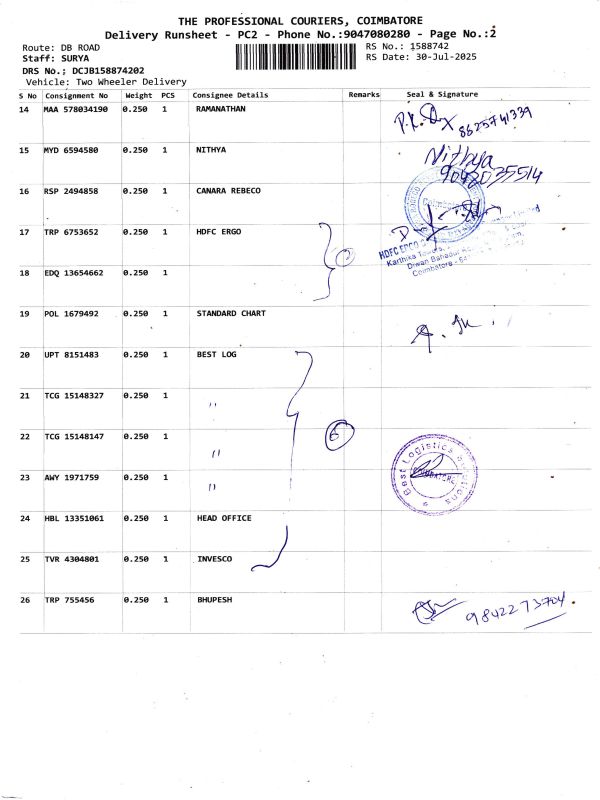 THE PROFESSIONAL COURIERS, COIMBATORE
Delivery Runsheet - PC2 - Phone No.:9047080280 - Page No.:2
Route: DB ROAD
RS No.: 1588742
Staff: SURYA
RS Date: 30-Jul-2025
DRS No.; DCJB158874202
Vehicle: Two Wheeler Delivery
S No Consignment No Weight PCS Consignee Details Remarks Seal & Signature
14 MAA 578034190 0.250 1 RAMANATHAN
8625741339
15 MYD 6594580 0.250 1 NITHYA Nithya
9042035514
16 RSP 2494858 0.250 1 CANARA REBECO
17 TRP 6753652 0.250 1 HDFC ERGO
HDFC ERGO
Karthika Towers,
Diwan Bahadur
Coimbatore - 64
18 EDQ 13654662 0.250 1
19 POL 1679492 0.250 1 STANDARD CHART
20 UPT 8151483 0.250 1 BEST LOG
21 TCG 15148327 0.250 1 "
22 TCG 15148147 0.250 1 " 6
Best Logistics Solutions
COIMBATORE
23 AWY 1971759 0.250 1 "
24 HBL 13351061 0.250 1 HEAD OFFICE
25 TVR 4304801 0.250 1 INVESCO
26 TRP 755456 0.250 1 BHUPESH 9842273704